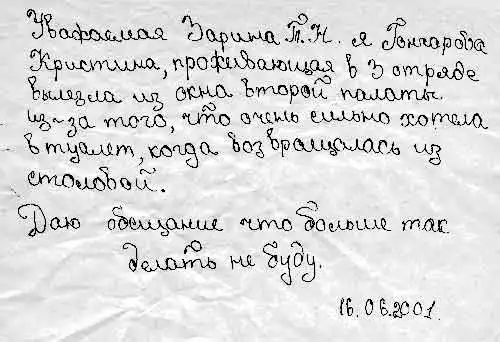 Уважаемая Зарина П.Н. я Гончарова
Кристина, проживающая в 3 отряде
вылезла из окна второй палаты
из-за того, что очень сильно хотела
в туалет, когда возвращилась из
столовой.
Даю обещание что больше так
делать не буду.
16.06.2001.